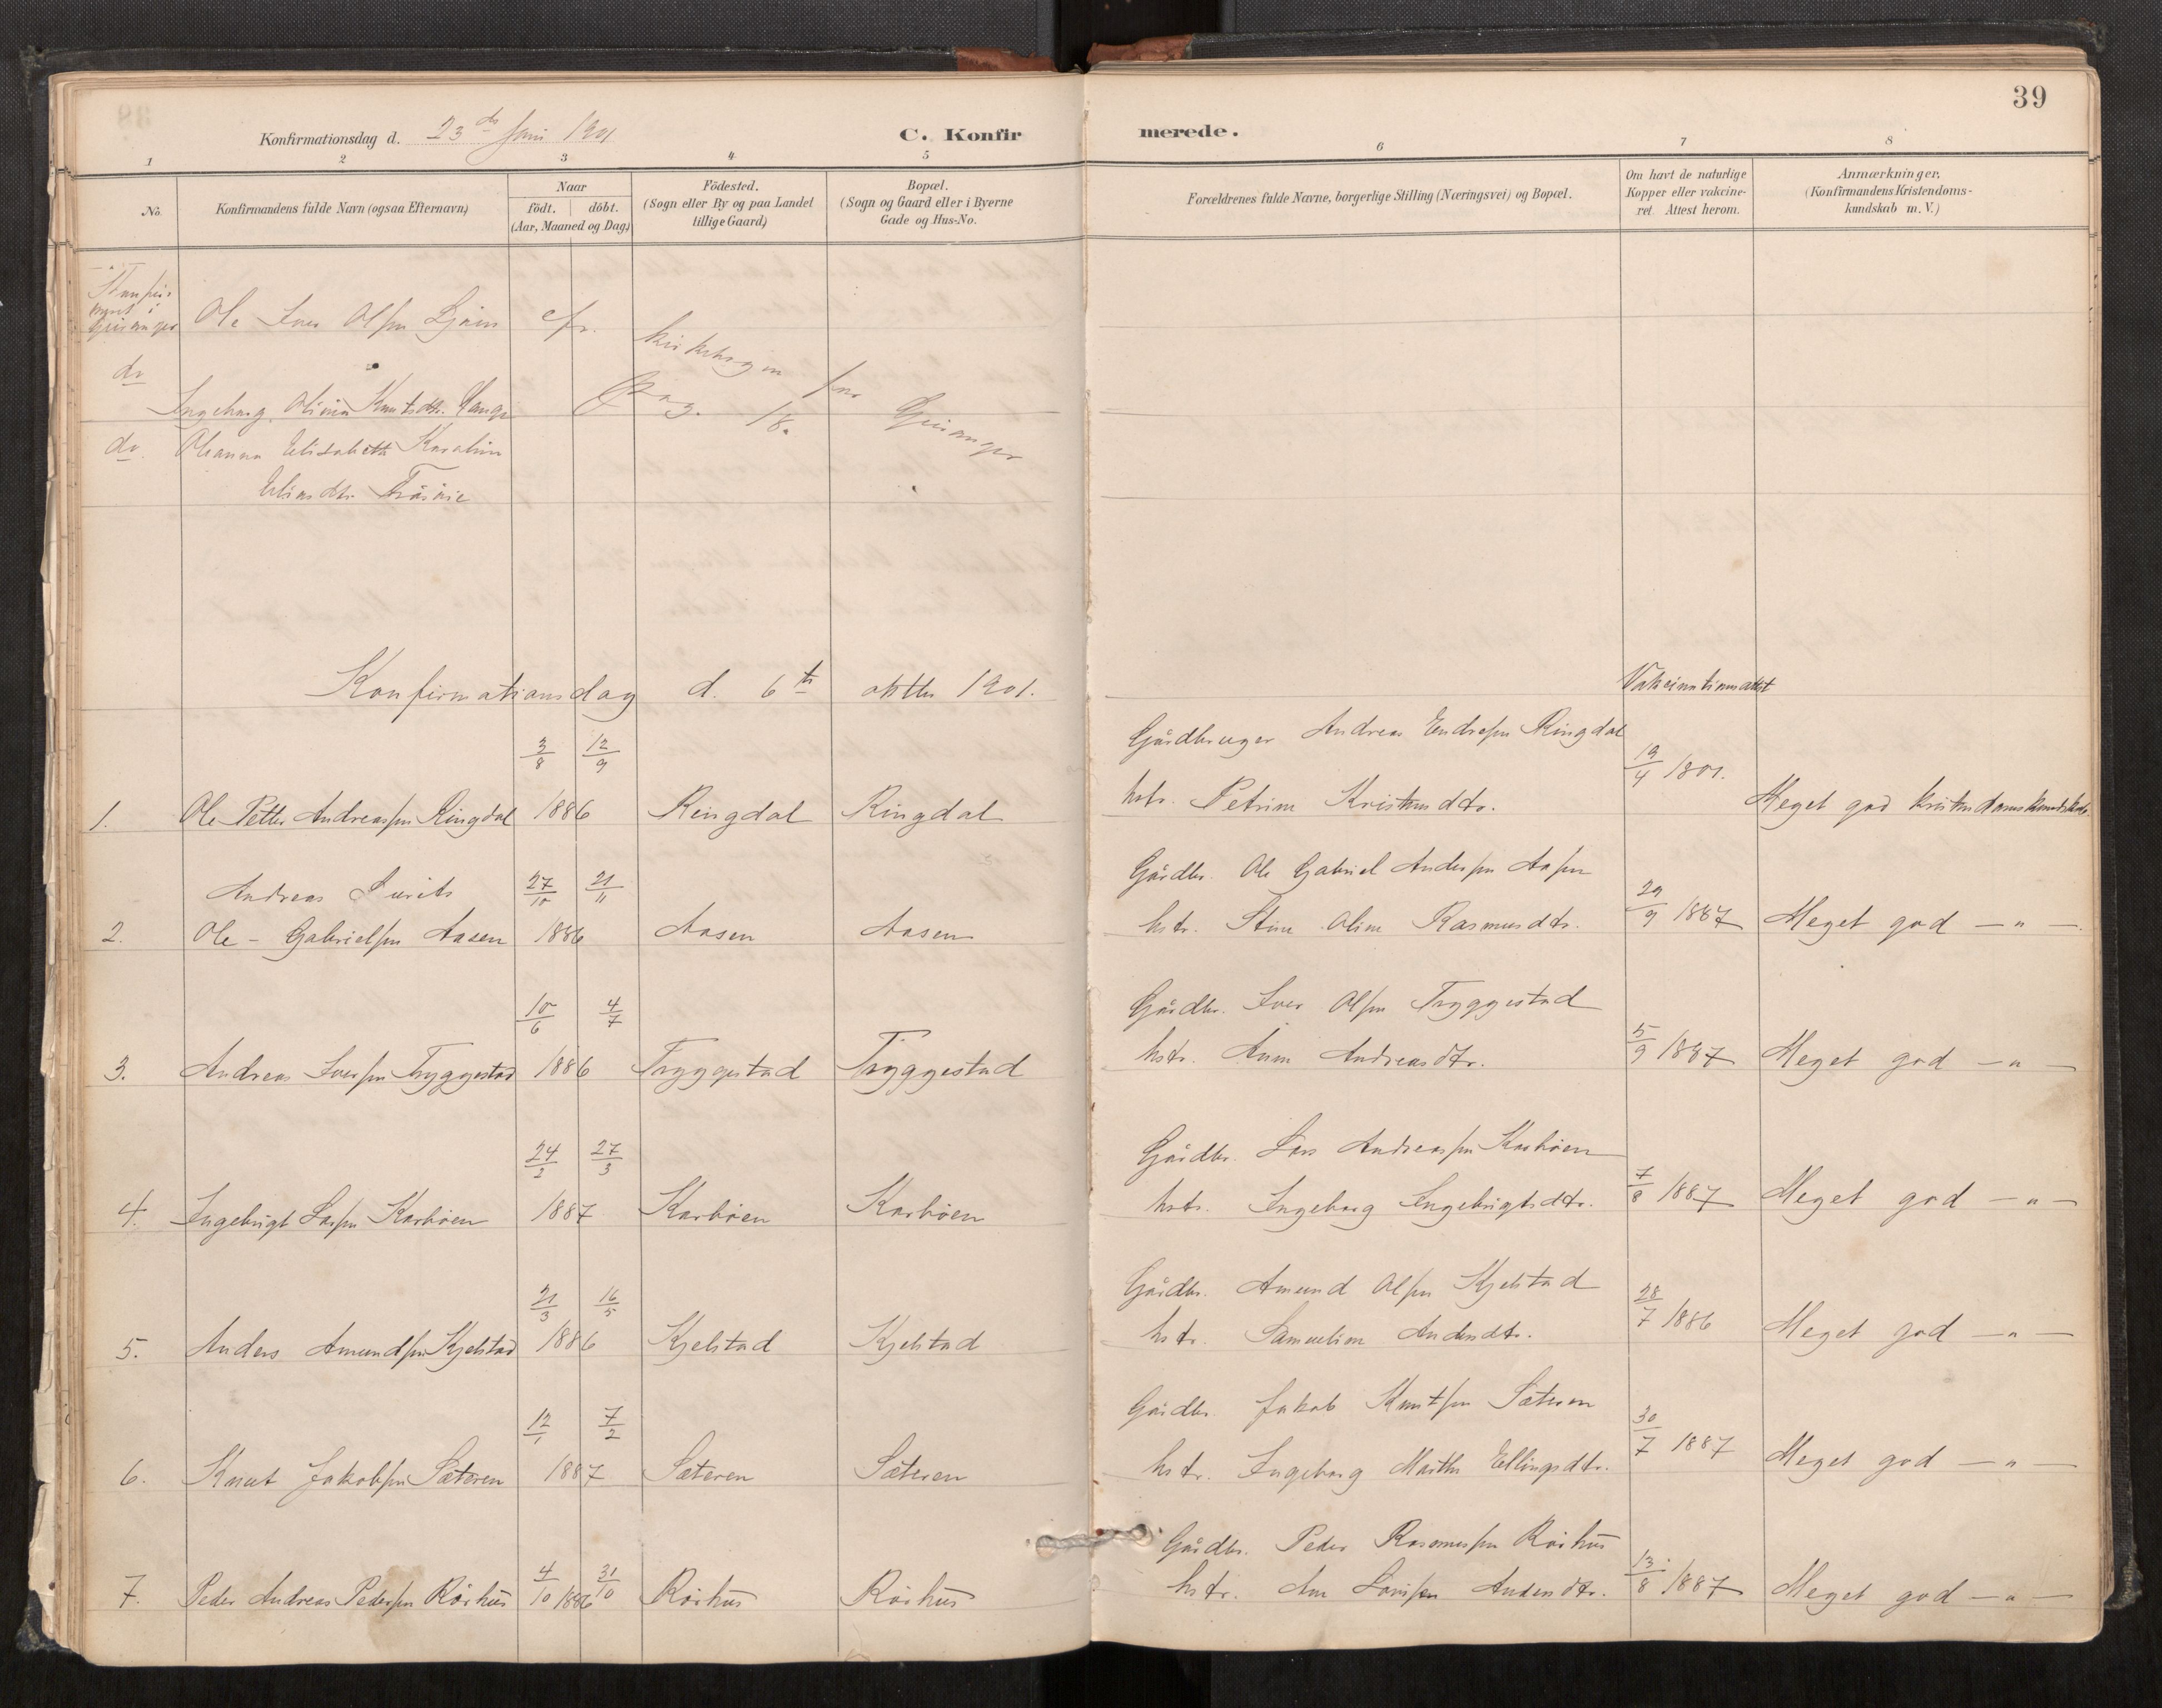 39
Konfirmationsdag d. 23de Juni 1901
C. Konfirmerede.
1 2 3 4 5 6 7 8
No.
Konfirmandens fulde Navn (ogsaa Efternavn)
Naar
födt. | döbt.
(Aar, Maaned og Dag.)
Födested.
(Sogn eller By og paa Landet
tillige Gaard)
Bopæl.
(Sogn og Gaard eller i Byerne
Gade og Hus-No.
Forældrenes fulde Navne, borgerlige Stilling (Næringsvei) og Bopæl.
Om havt de naturlige
Kopper eller vakcine-
ret. Attest herom.
Anmærkninger.
(Konfirmandens Kristendoms-
kundskab m. V.)
Geiranger Ole Iver Olsen Ljøen cfr. kirkebogen for Geiranger
do
Ingeborg Olivia Knutsdtr. Pag. 18.
do. Oleanna Elisabeth Karoline
Eliasdtr.
Konfirmationsdag d. 6te oktbr 1901.
Vakcinationsattest
3/8 12/9 Gårdbruger Andreas Endresen Ringdal
1. Ole Petter Andreassen Ringdal 1886 Ringdal Ringdal hstr. Petrine Kristensdtr. 19/4 1801. Meget god kristendomskundskab.
Andreas Lurits 27/10 21/11 Gårdbr. Ole Gabriel Andersen Aasen
2. Ole - Gabrielsen Aasen 1886 Aasen Aasen hstr. Stine Oline Rasmusdtr. 29/9 1887 Meget god — " —
10/6 4/7 Gårdbr. Iver Olsen Tryggestad
3. Andreas Iversen Tryggestad 1886 Tryggestad Tryggestad hstr. Anne Andreasdtr. 5/9 1887 Meget god — " —
24/2 27/3 Gårdbr. Lars Andreassen Karbøen
4. Ingebrigt Larsen Karbøen 1887 Karbøen Karbøen hstr. Ingeborg Ingebrigtsdtr. 7/8 1887 Meget god — " —
21/3 16/5 Gårdbr. Amund Olsen Kjelstad
5. Anders Amundsen Kjelstad 1886 Kjelstad Kjelstad hstr. Samueline Andersdtr. 28/7 1886 Meget god — " —
12/1 7/2 Gårdbr. Jakob Knutsen Sæteren
6. Knut Jakobsen Sæteren 1887 Sæteren Sæteren hstr. Ingeborg Marthe Ellingsdtr. 30/7 1887 Meget god — " —
4/10 31/10 Gårdbr. Peder Rasmussen Rørhus
7. Peder Andreas Pedersen Rørhus 1886 Rørhus Rørhus hstr. Ane Lovise Andersdtr. 13/8 1887 Meget god — " —